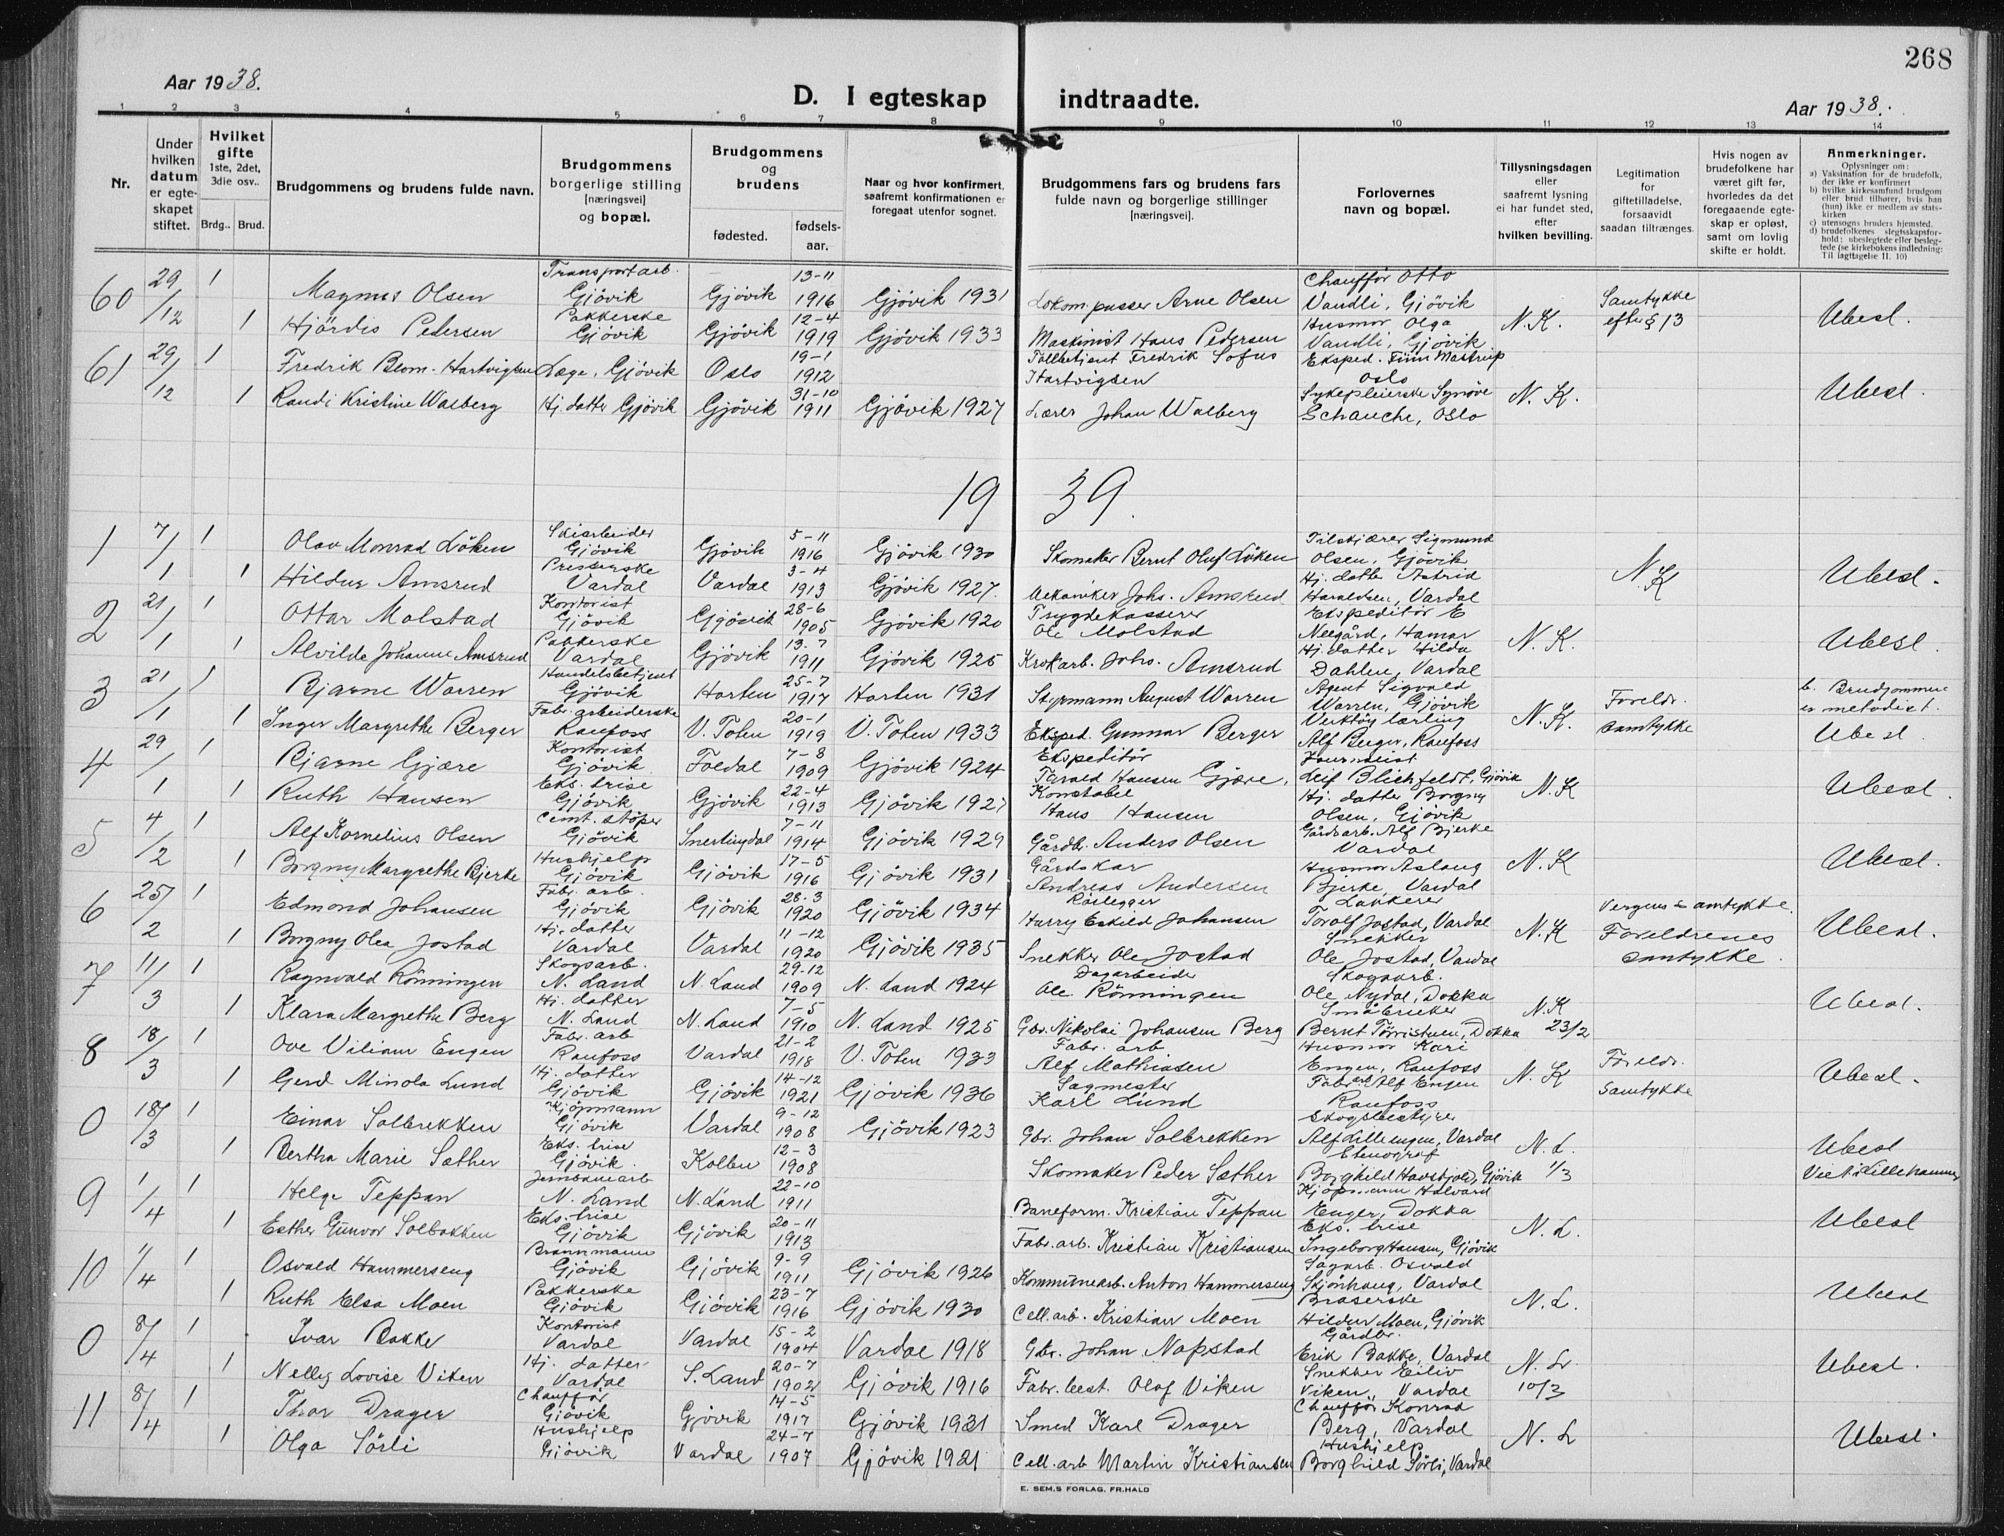 268
Aar 1938.
D. I egteskap indtraadte.
Aar 1938.
1 2 3 4 5 6 7 8 9 10 11 12 13 14
Nr.
Under hvilken datum er egte-skapet stiftet.
Hvilket gifte
1ste, 2det, 3die osv..
Brdg.. Brud.
Brudgommens og brudens fulde navn.
Brudgommens borgerlige stilling [næringsvei] og bopæl.
Brudgommens og brudens
fødested.
fødsels-aar.
Naar og hvor konfirmert, saafremt konfirmationen er foregaat utenfor sognet.
Brudgommens fars og brudens fars fulde navn og borgerlige stillinger [næringsvei].
Forlovernes navn og bopæl.
Tillysningsdagen eller saafremt lysning ei har fundet sted, efter hvilken bevilling.
Legitimation for giftetilladelse, forsaavidt saadan tiltrænges.
Hvis nogen av brudefolkene har været gift før, hvorledes da det foregaaende egte-skap er opløst, samt om lovlig skifte er holdt.
Anmerkninger.
Oplysninger om:
a) Vaksination for de brudefolk, der ikke er konfirmert
b) hvilke kirkesamfund brudgom eller brud tilhører, hvis han (hun) ikke er medlem av stats-kirken
c) utensogns bruders hjemsted.
d) brudefolkenes slegtsskapsfor-hold: ubeslegtede eller besleg-tede (se kirkebokens indledning: Til Iagttagelse II. 10)
60 29/12 1 Magnus Olsen Transportarb. Gjövik Gjövik 13-11 1916 Gjövik 1931 Lokom.pusser Arne Olsen Chauffør Otto Vandli, Gjövik N.K. Samtykke efter § 13 Ubesl.
1 Hjördis Pedersen Pakkerske Gjövik Gjövik 12-4 1919 Gjövik 1933 Maskinist Hans Pedersen Husmor Olga Vandli, Gjövik
61 29/12 1 Fredrik Blom-Hartvigsen Læge, Gjövik Oslo 19-1 1912 Tollbetjent Fredrik Sofus Hartvigsen Eksped. Finn Mastrup Oslo N.K. Ubesl.
1 Randi Kristine Walberg Hj. datter Gjövik Gjövik 31-10 1911 Gjövik 1927 Lærer Johan Walberg Sykepleierske Synöve Schanche, Oslo
19 39.
1 7/1 1 Olav Monrad Löken Skiarbeider Gjövik Gjövik 5-11 1916 Gjövik 1930 Skomaker Bernt Oluf Löken Tilskjærer Sigmund Olsen, Gjövik N.K. Ubesl.
1 Hildur Amsrud Presserske Vardal Vardal 3-4 1913 Gjövik 1927. Mekaniker Johs. Amsrud Hj. datter Astrid Haraldsen, Vardal
2 21/1 1 Ottar Molstad Kontorist Gjövik Gjövik 28-6 1905 Gjövik 1920 Trygdekasserer Ole Molstad Ekspeditör E Neegård, Hamar N.K. Ubesl.
1 Alvilde Johanne Amsrud Pakkerske Vardal Gjövik 13-7 1911 Gjövik 1925 Krokarb. Johs. Amsrud Hj. datter Hilda Dahlen, Vardal
3 21/1 1 Bjarne Warren Handelsbetjent Gjövik Horten 25-7 1917 Horten 1931 Styrmann August Warren Agent Sigvald Warren, Gjövik N.K. Foreldr. samtykke b. Brudgommen er metodist. Ubesl.
1 Inger Margrethe Berger Fabr. arbeiderske Raufoss V. Toten 20-1 1919 V. Toten 1933 Eksped. Gunnar Berger Verktöy lærling Alf Berger, Raufoss
4 29/1 1 Bjarne Gjære Kontorist Gjövik Foldal 7-8 1909 Gjövik 1924 Ekspeditör Tarald Hansen Gjære, Journalist Leif Blichfeldt, Gjövik N.K Ubesl.
1 Ruth Hansen Eks. trise Gjövik Gjövik 22-4 1913 Gjövik 1927 Konstabel Hans Hansen Hj. datter Borgny Olsen, Gjövik
5 4/2 1 Alf Kornelius Olsen Cemt. stöper Gjövik Snertingdal 7-11 1914 Gjövik 1929 Gårdbr. Anders Olsen Gårdsarb. Alf Bjerke Vardal N.K. Ubesl.
1 Borgny Margrethe Bjerke Hushjelp Gjövik Gjövik 17-5 1916 Gjövik 1931 Gårdskar Andreas Andersen Husmor Aslaug Bjerke, Vardal
6 25/2 1 Edmond Johansen Fabr. arb. Gjövik Gjövik 28-3 1920 Gjövik 1934 Rörlegger Harry Eskild Johansen Lakkerer Torolf Jostad, Vardal N.K Vergens samtykke. Foreldrenes samtykke. Ubesl.
1 Borgny Olea Jostad Hj. datter Vardal Vardal 11-12 1920 Gjövik 1935 Snekker Ole Jostad Snekker Ole Jostad, Vardal
7 11/3 1 Ragnvald Rönningen Skogsarb. N. Land N. Land 29-12 1909 N. Land 1924 Dagarbeider Ole Rönningen Skogsarb. Ole Nydal, Dokka N.K 23/2 Ubesl.
1 Klara Margrethe Berg Hj. datter N. Land N. Land 7-5 1910 N. Land 1925 Gbr. Nikolai Johansen Berg Småbruker Bernt Törristuen, Dokka
8 18/3 1 Ove Viliam Engen Fabr. arb Raufoss Vardal 21-2 1918 V. Toten 1933 Fabr. arb Alf Mathiasen Husmor Kari Engen, Raufoss N.K Foreldr. samtykke Ubesl.
1 Gerd Minola Lund Hj. datter Gjövik Gjövik 14-12 1921 Gjövik 1936 Sagmester Karl Lund Fabr arb Alf Engen Raufoss
0 18/3 1 Einar Solbrekken Kjöpmann Gjövik Vardal 9-12 1908 Gjövik 1923 Gbr. Johan Solbrekken Skogsbestyrer Alf Lillengen, Vardal N.L. 1/3 Ubesl Viet i Lillehammer
1 Bertha Marie Sæther Eks. trise Gjövik. Kolbu 12-3 1908 Skomaker Peder Sæther Stenograf Borghild Havstjold, Gjövik
9 1/4 1 Helge Teppan Jernbanearb N. Land N. Land 22-10 1911 Baneform. Kristian Teppan Kjöpmann Halvard Enger, Dokka N.L. Ubesl
1 Esther Gunvor Solbakken Eks. trise Gjövik Gjövik 20-11 1913 Fabr. arb. Kristian Kristiansen Eks. trise Ingeborg Hansen, Gjövik
10 1/4 1 Osvald Hammerseng Brannmann Gjövik Gjövik 9-9 1911 Gjövik 1926 Kommunearb. Anton Hammerseng Sagarb. Osvald Skjönhaug, Vardal N.L. Ubesl
1 Ruth Elsa Moen Pakkerske Gjövik Gjövik 23-7 1916 Gjövik 1930 Cell. arb. Kristian Moen Hildur Moen, Gjövik
0 8/4 1 Ivar Bakke Kontorist Vardal Vardal 15-2 1904 Vardal 1918 Gbr. Johan Napstad Gårdbr. Erik Bakke, Vardal N.L. 10/3 Ubesl.
1 Nelly Lovise Viken Hj. datter Vardal S. Land 20-7 1902 Gjövik 1916 Fabr. best. Olof Viken Snekker Eiliv Viken, Vardal
11 8/4 1 Thor Drager Chauffør Gjövik Gjövik 14-5 1917 Gjövik 1931 Smed Karl Drager Chauffør Konrad Berg, Vardal N.L Ubesl.
1 Olga Sörli Hushjelp Gjövik Vardal 24-7 1907 Gjövik 1921 Cell. arb Martin Kristiansen Hushjelp Borghild Sörli, Vardal
E. SEM.S FORLAG, FR.HALD